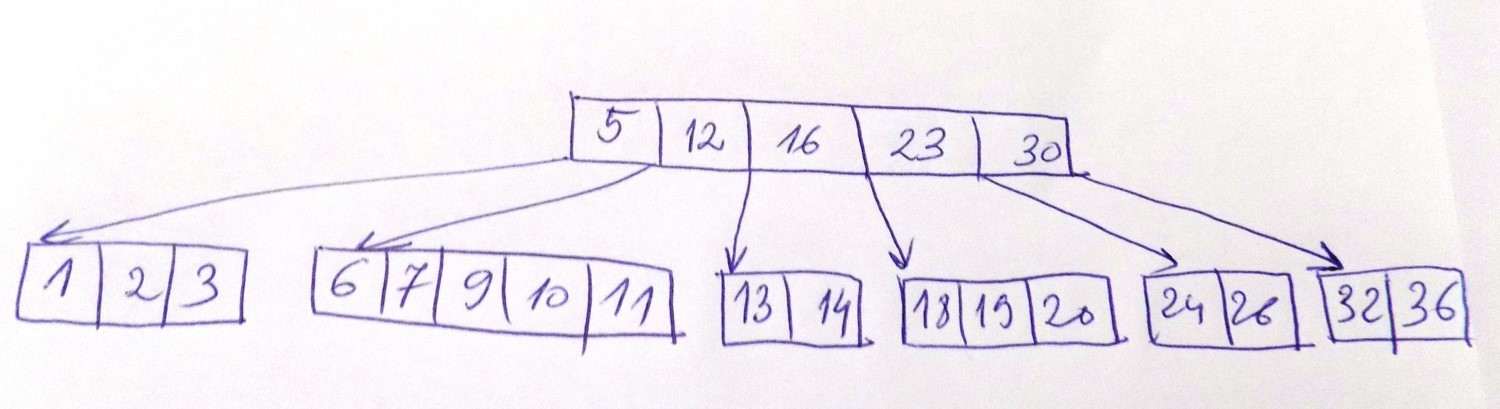 5 12 16 23 30
1 2 3 6 7 9 10 11 13 14 18 19 20 24 26 32 36